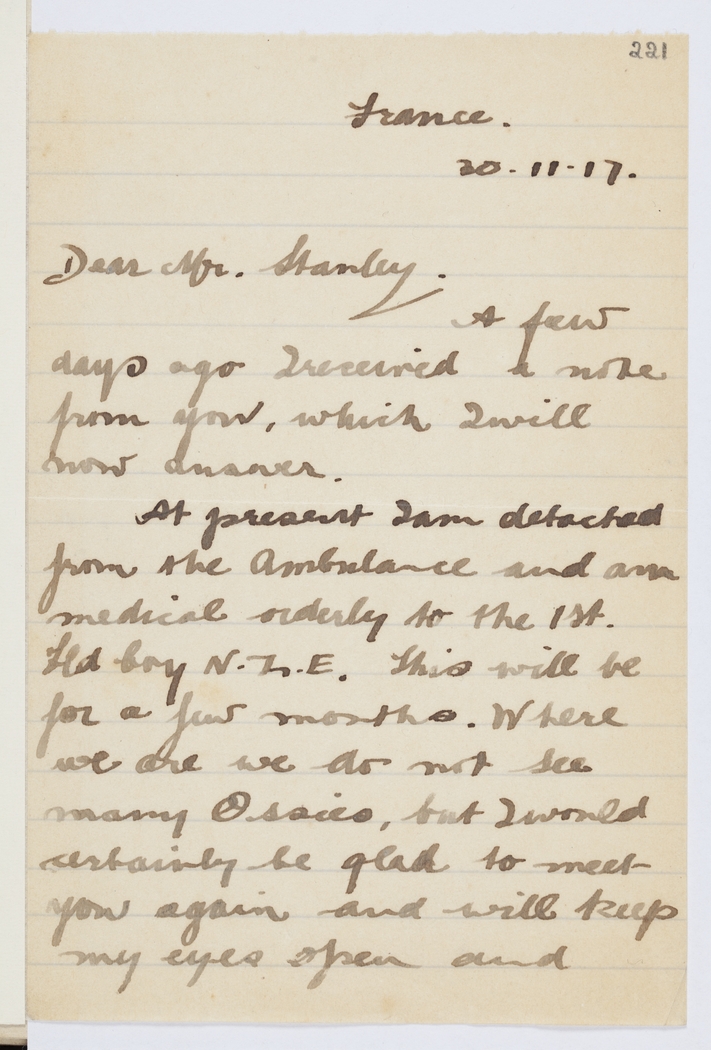 221
France.
20-11-17.
Dear Mr. Stanley.
A few
days ago I received a note
from you, which I will
now answer.
At present I am detached
from the Ambulance and am
medical orderly to the 1st.
Fld Coy N.Z.E. This will be
for a few months. Where
we are we do not see
many Ossies, but I would
certainly be glad to meet
you again and will keep
my eyes open and